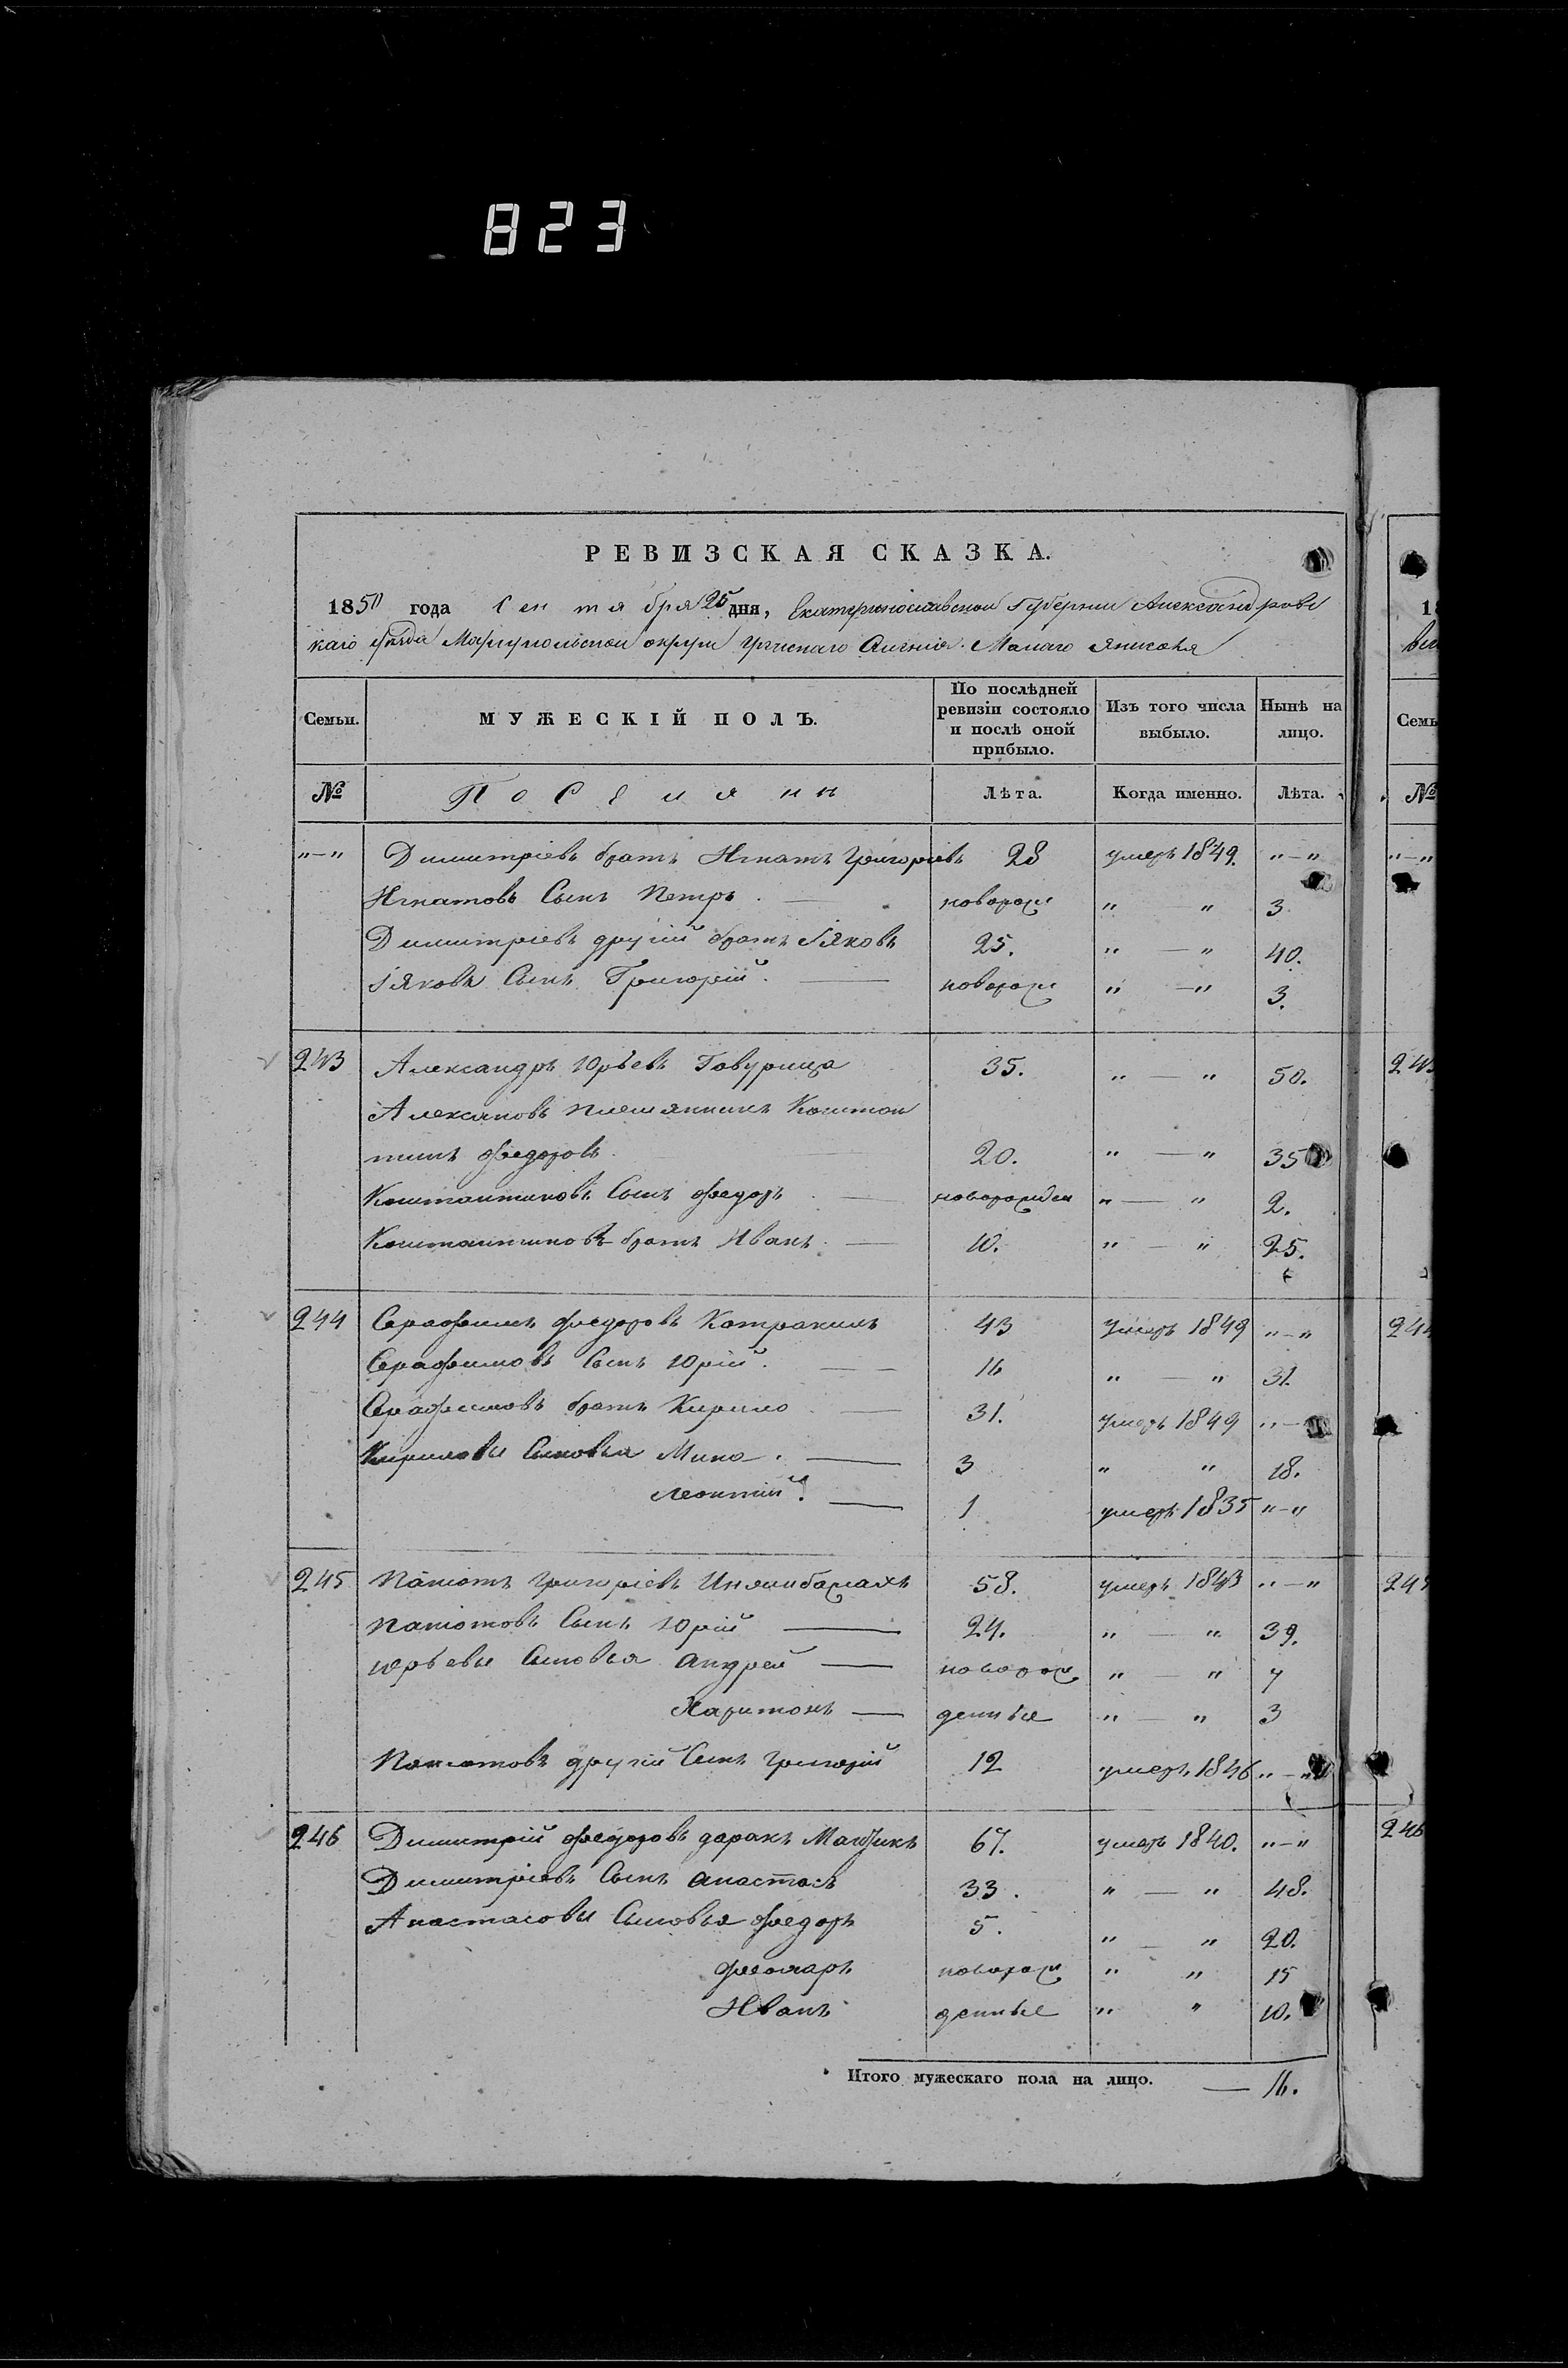 823
РЕВИЗСКАЯ СКАЗКА.
1850 года Сентября 25 дня, Екатеринославской Губернии Александровс
каго уезда Мариупольской округи Греческаго Селения Малаго Янисоля
Семьи. МУЖЕСКІЙ ПОЛЪ. По послѣдней ревизіи состояло и послѣ оной прибыло. Изъ того числа выбыло. Нынѣ на лицо.
№ Поселянъ Лѣта. Когда именно. Лѣта.
"—" Димитріевъ братъ Игнатъ Григоріевъ 28 умеръ 1849. "—"
Игнатовъ Сынъ Петръ. — новорож " — " 3.
Димитріевъ другій братъ Іяковъ 25. " — " 40.
Іяковъ Сынъ Григорій. — новорож " — " 3.
243 Александръ Юрьевъ Говурица 35. " — " 50.
племянникъ Констан
тинъ Федоровъ. 20. " — " 35
Константиновъ Сынъ Федоръ — новорожден " — " 2.
Константиновъ братъ Иванъ. — 10. " — " 25.
244 Серафимъ Федоровъ 43 умеръ 1849 "—"
Серафимовъ Сынъ Юрій. — 16 " — " 31.
Серафимовъ братъ Кирило — 31. умеръ 1849 "—
Кириловы Сыновья Мина. — 3 " " 18.
Леонтий. — 1 умеръ 1835 "—"
245 Григоріевъ 58. умеръ 1843 "—"
Сынъ Юрій — 24. " — " 39.
юрьевы Сыновья Андрей — новорож " — " 7
Харитонъ — денные " — " 3
другій Сынъ Григорій 12 умеръ 1846 "—"
246 Димитрій Федоровъ 67. умеръ 1840. "—"
Димитріевъ Сынъ Анастасъ 33. " — " 48.
Анастасовы Сыновья Федоръ 5. " — " 20.
новорож " " 15
Иванъ денные " " 10.
Итого мужескаго пола на лицо. — 16.
№
"—"
243
244
245
246